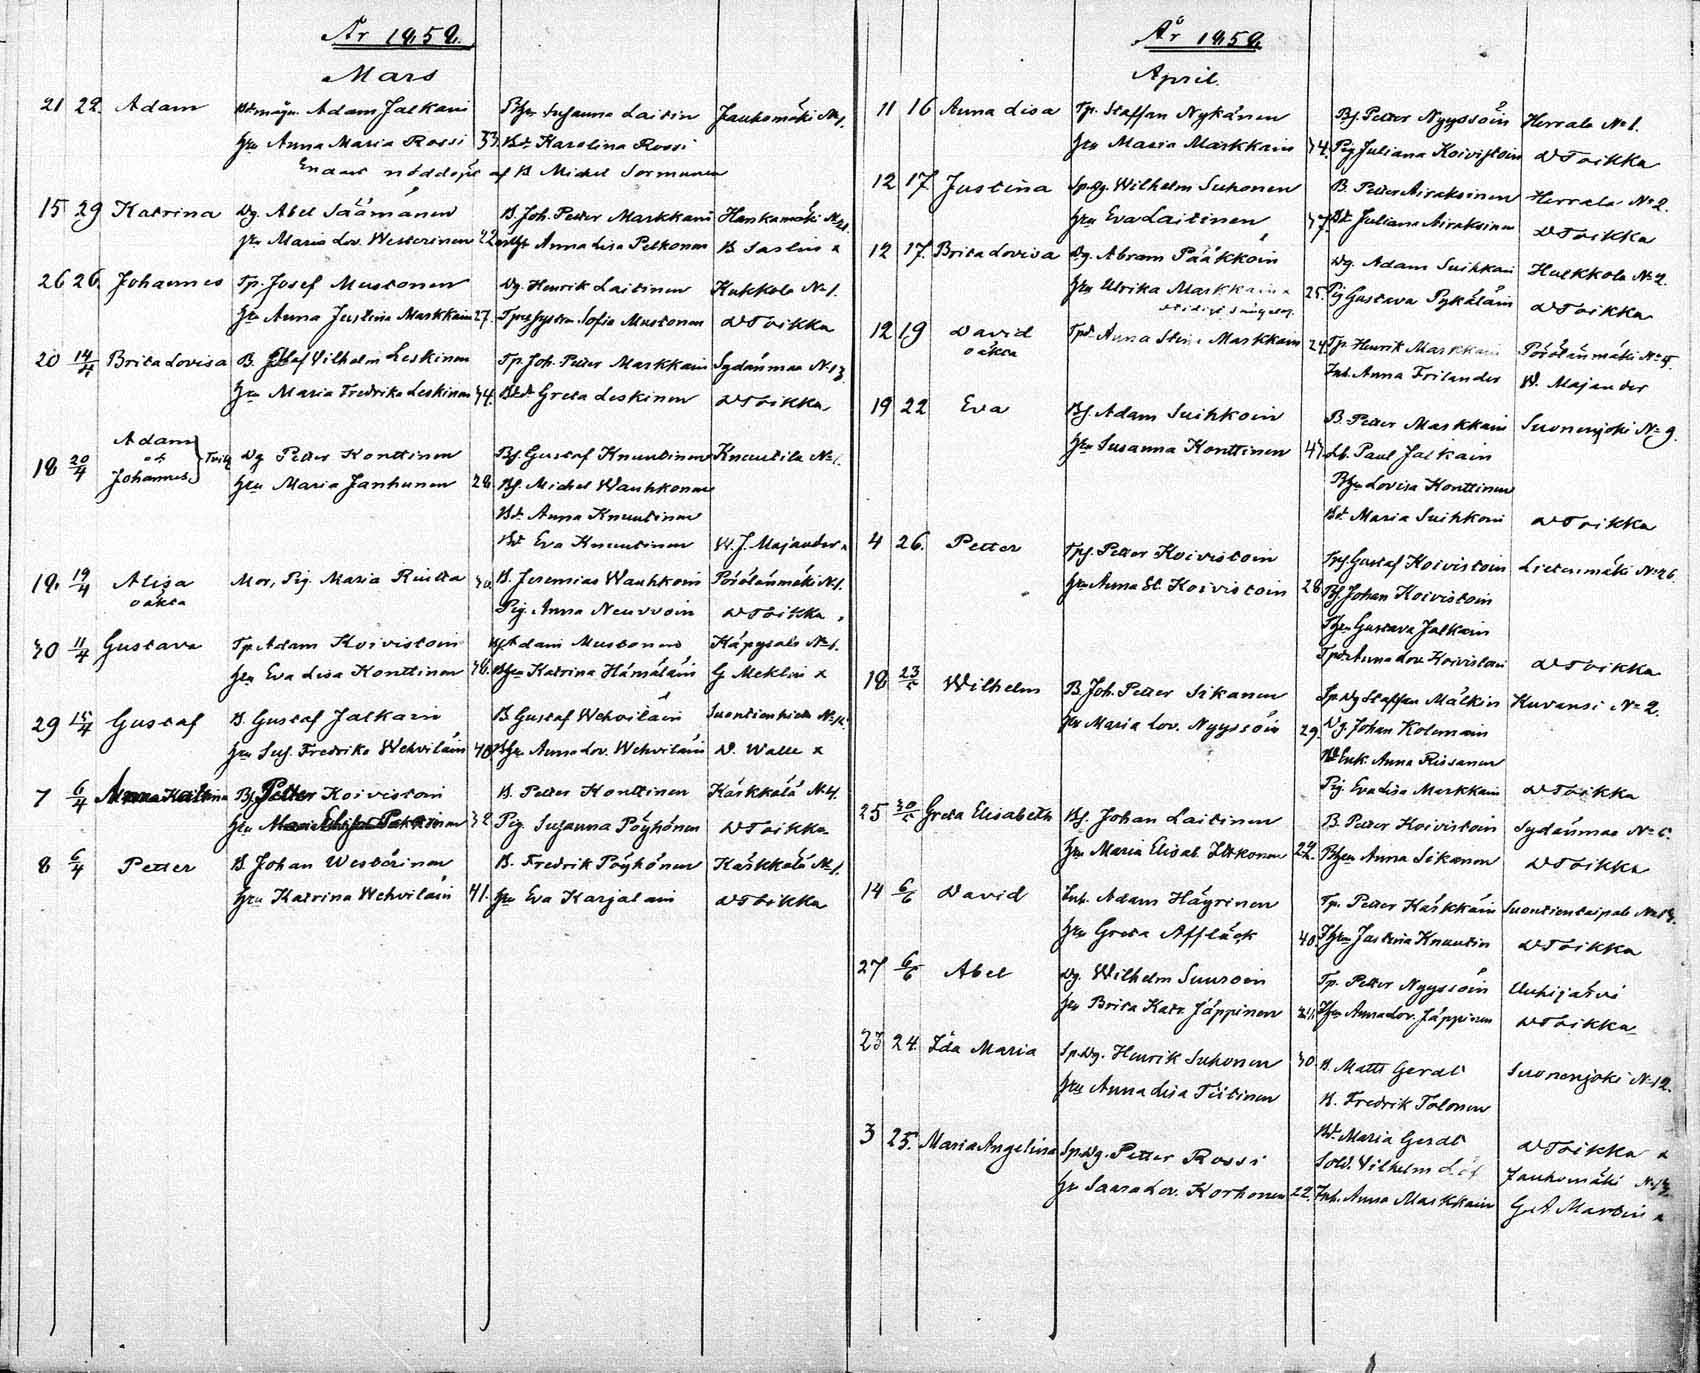 År 1858.
Mars
21 22. Adam Adam Jalkain Susanna Laitin Jauhomäki No 1.
Hu Anna Maria Rossi 33. Bd. Karolina Rossi
nöddöpt af B Michel Sormunen
15 29 Katrina Dg. Abel Säämänen B. Joh. Petter Markkain Hankamäki
Hu Maria Lov. Westerinen 22 Anna Lisa Pelkonen
26 26. Johannes Tp. Josef Mustonen Dg. Henrik Laitinen Kukkola No 1.
Hu Anna Justina Markkain 27. Sofia Mustonen D Toikka
20 14/4 Brita Lovisa B. Olof Vilhelm Leskinen Tp. Joh. Petter Markkain Sydänmaa No 13
Hu Maria Fredrika Leskinen 34. Greta Leskinen D Toikka
18 20/4 Adam och Johannes Dg Petter Konttinen Bf. Gustaf Knuutinen Knuutila No 1.
Hu Maria Janhunen 28. Bf. Michel Wauhkonen
Bd. Anna Knuutinen
Bd. Eva Knuutinen W. J. Majander
18. 19/4 Alisa oäkta Mor, Pig. Maria 30 B. Jeremias Wauhkoin Pörölänmäki No 1.
Pig. Anna Neuvoin D Toikka
30 11/4 Gustava Tp. Adam Koivistoin Adam Mustonen Käpysalo No 1.
Hu Eva Lisa Konttinen 38. Katrina Hämäläin G Meklin x
29 15/4 Gustaf B. Gustaf Jalkain B. Gustaf Wehviläin
Hu Sus. Fredrika Wehviläin 40 Anna Lov. Wehviläin D. Walle x
7 6/4 Anna Katrina Bf. Petter Koivistoin B. Petter Konttinen Kärkkälä No 4.
Hu Maria 32 Pig. Susanna Pöyhönen D Toikka
8 6/4 Petter B. Johan Westärinen B. Fredrik Pöyhönen Kärkkälä No 1.
Hu Katrina Wehviläin 41. Hu Eva Karjalain D Toikka
År 1858
April.
11 16 Anna Lisa Tp. Staffan Nykänen Bf. Petter Nyyssöin Herrala No 1.
Hu Maria Markkain 34. Pig Juliana Koivistoin D Toikka
12 17. Justina Sp. Dg. Wilhelm Suhonen B. Petter Airaksinen Herrala No 2.
Hu Eva Laitinen 37. Bd. Juliana Airaksinen D Toikka
12 17. Brita Lovisa Dg. Abram Pääkköin Dg. Adam Suihkain Hulkkola No 2.
Hu Ulrika Markkain 25. Pig Gustava Pykäläin D Toikka
12 19 David oäkta Anna Stina Markkain 24. Tp. Henrik Markkain Pörölänmäki No 5.
Inh. Anna Frilander W. Majander
19 22 Eva Bf. Adam Suihkoin B. Petter Markkain Suonenjoki No 9.
Hu Susanna Konttinen 43. Paul Jalkain
Lovisa Konttinen
Bd. Maria Suihkoin D Toikka
4 26. Petter Tps. Petter Koivistoin Tps. Gustaf Koivistoin Lietenmäki No 26.
Hu Anna El. Koivistoin 28. Bf. Johan Koivistoin
Gustava Jalkain
Anna Lov. Koivistoin D Toikka
18 23/5 Wilhelm B. Joh. Petter Sikanen Sp. Dg Staffan Mälkin Kuvansi No 2.
Hu Maria Lov. Nyyssöin 29. Johan Kolemain
Enk. Anna Rissanen
Pig. Eva Lisa Markkain D Toikka
25 30/5 Greta Elisabeth Bf. Johan Laitinen B. Petter Koivistoin Sydänmaa
Hu Maria Elisab. Itkonen 22. Anna Sikanen D Toikka
14 6/6 David Inh. Adam Häyrinen Tp. Petter Kärkkäin Suontientaipale
Hu Greta Affläck 40. Justina Knuutin D Toikka
27 6/6 Abel Dg. Wilhelm Suuroin Tp. Petter Nyyssöin
Hu Brita Katr. Jäppinen Anna Lov. Jäppinen D Toikka
23 24. Ida Maria Sp. Dg. Henrik Suhonen 30. B. Matts Gerdt Suonenjoki No 12.
Hu Anna Lisa Tiitinen B. Fredrik Tolonen
Bd. Maria Gerdt D Toikka x
3 25. Maria Angelina Sp. Dg. Petter Rossi Sold. Vilhelm Jauhomäki
Hu Saara Lov. Korhonen 22. Inh. Anna Markkain G. A Martin x